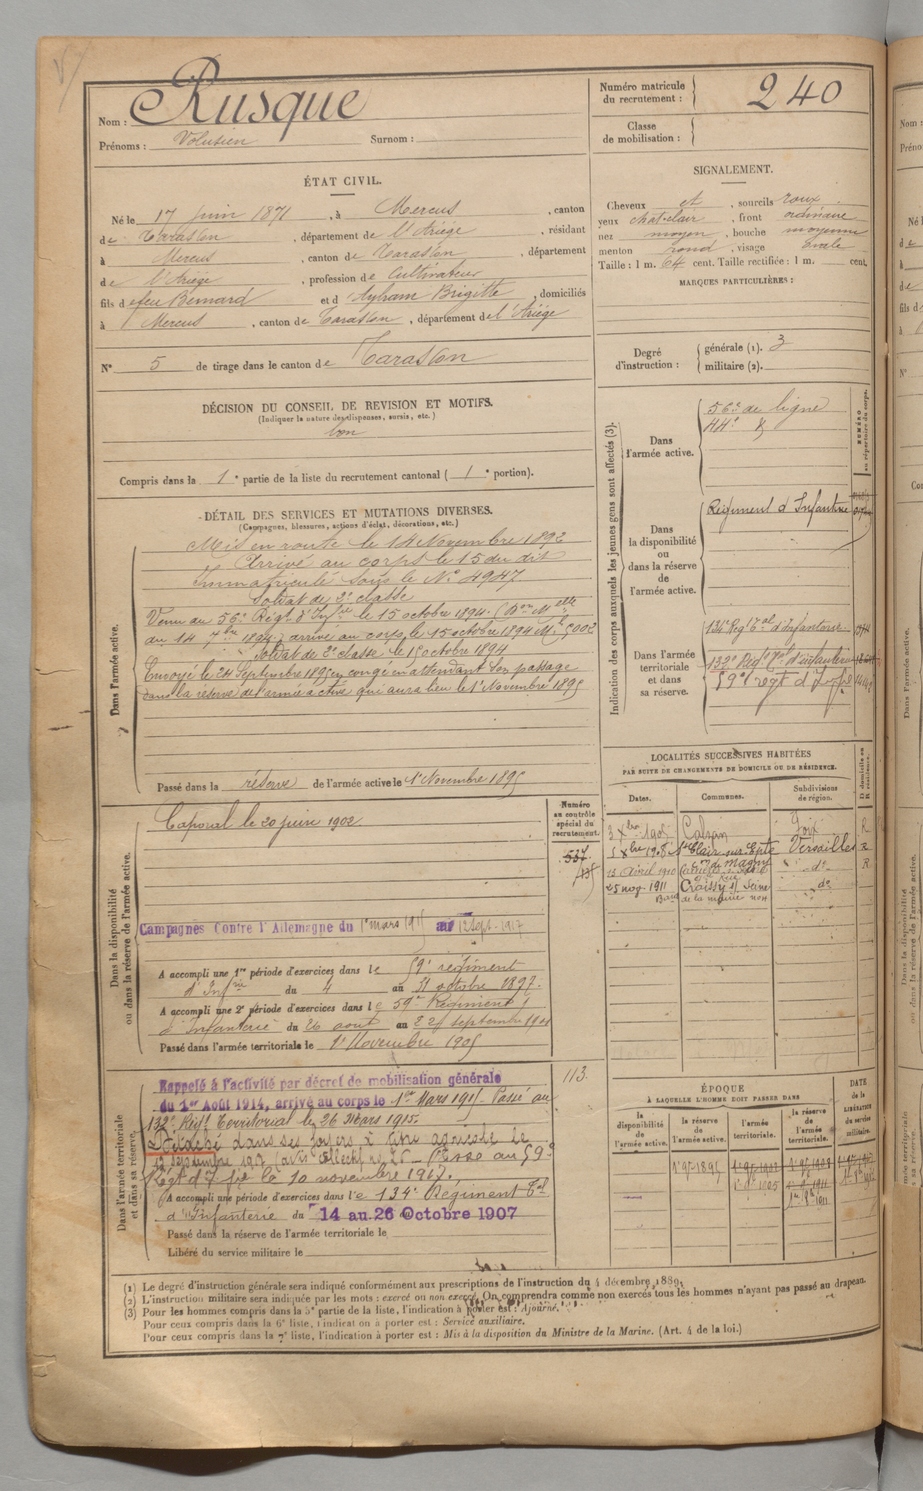 Nom : Rusque
Prénoms : Volusien Surnom :
Numéro matricule du recrutement : 240
Classe de mobilisation :
ÉTAT CIVIL.
Né le 17 juin 1871, à Mercus, canton
de Tarascon, département de l'Ariège, résidant
à Mercus, canton de Tarascon, département
de l'Ariège, profession de Cultivateur
fils de feu Bernard et d'Aylram Brigitte, domiciliés
à Mercus, canton de Tarascon, département de l'Ariège
N° 5 de tirage dans le canton de Tarascon
SIGNALEMENT.
Cheveux et, sourcils roux
yeux chat-clair, front ordinaire
nez moyen, bouche moyenne
menton rond, visage ovale
Taille : 1 m. 64 cent. Taille rectifiée : 1 m. cent.
MARQUES PARTICULIÈRES :
Degré d'instruction : générale (1). 3
militaire (2).
DÉCISION DU CONSEIL DE REVISION ET MOTIFS.
(Indiquer la nature des dispenses, sursis, etc.)
bon
Compris dans la 1e partie de la liste du recrutement cantonal ( 1e portion).
DÉTAIL DES SERVICES ET MUTATIONS DIVERSES.
(Campagnes, blessures, actions d'éclat, décorations, etc.)
Dans l'armée active.
Mis en route le 14 Novembre 1892
Arrivé au corps le 15 du dit
Immatriculé sous le N° 4947
Soldat de 2e classe
Venu du 56e Régt d'Infrie le 15 octobre 1894. (Don Mlle
du 14 7bre 1894) arrivé au corps le 15 octobre 1894 Mle 5002
Soldat de 2e classe le 15 octobre 1894
Envoyé le 24 Septembre 1895 en congé en attendant son passage
dans la réserve de l'armée active qui aura lieu le 1er Novembre 1895
Passé dans la réserve de l'armée active le 1er Novembre 1895
Indication des corps auxquels les jeunes gens sont affectés (3).
NUMÉRO au répertoire du corps.
Dans l'armée active.
56e de ligne
44e
Dans la disponibilité ou dans la réserve de l'armée active.
Régiment d'Infanterie
Dans l'armée territoriale et dans sa réserve.
134e Régt Tal d'Infanterie
132e Régt Tal d'infanterie
59e régt d'Infie
LOCALITÉS SUCCESSIVES HABITÉES
PAR SUITE DE CHANGEMENTS DE DOMICILE OU DE RÉSIDENCE.
Dates. Communes. Subdivisions de région. D domicile ou R résidence.
3 Xbre 1905 Calzan Foix R
5 Xbre 1908 St Clair-sur-Epte Versailles R
con de Magny
13 Avril 1910 do R
25 nov. 1911 Croissy s/ Seine do
de la mairie
Dans la disponibilité ou dans la réserve de l'armée active.
Numéro au contrôle spécial du recrutement.
537
Caporal le 20 juin 1902
Campagnes Contre l'Allemagne du 1er mars 1915 au 12 Sept. 1917
A accompli une 1re période d'exercices dans le 59e régiment
d'Infrie du 4 au 31 octobre 1897.
A accompli une 2e période d'exercices dans le 59e Régiment
d'Infanterie du 26 aout au 22 septembre 1901
Passé dans l'armée territoriale le 1er Novembre 1905
Dans l'armée territoriale et dans sa réserve.
113
Rappelé à l'activité par décret de mobilisation générale
du 1er Août 1914, arrivé au corps le 1er Mars 1915. Passé au
132e Régt Territorial le 26 Mars 1915.
Détaché dans ses foyers à titre agricole le
12 septembre 1917 (avis collectif Passé au 59e
Régt d'Infie le 10 novembre 1917.
A accompli une période d'exercices dans le 134e Régiment Tal
d'Infanterie du 14 au 26 Octobre 1907
Passé dans la réserve de l'armée territoriale le
Libéré du service militaire le
ÉPOQUE
À LAQUELLE L'HOMME DOIT PASSER DANS
la disponibilité de l'armée active. la réserve de l'armée active. l'armée territoriale. la réserve de l'armée territoriale.
DATE de la LIBÉRATION du service militaire.
1er 9bre 1895
(1) Le degré d'instruction générale sera indiqué conformément aux prescriptions de l'instruction du 4 décembre 1889.
(2) L'instruction militaire sera indiquée par les mots : exercé ou non exercé. On comprendra comme non exercés tous les hommes n'ayant pas passé au drapeau.
(3) Pour les hommes compris dans la 3e partie de la liste, l'indication à porter est : Ajourné.
Pour ceux compris dans la 6e liste, l'indication à porter est : Service auxiliaire.
Pour ceux compris dans la 7e liste, l'indication à porter est : Mis à la disposition du Ministre de la Marine. (Art. 4 de la loi.)